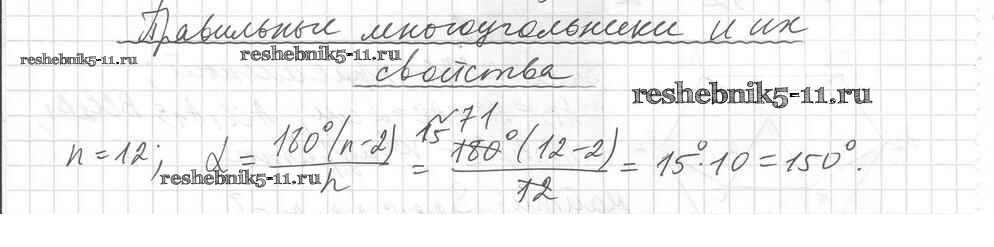 Правильные многоугольники и их
reshebnik5-11.ru reshebnik5-11.ru
свойства
reshebnik5-11.ru
71
n = 12; α = 180°(n-2)/n = 15 180°(12-2)/12 = 15°·10 = 150°.
reshebnik5-11.ru